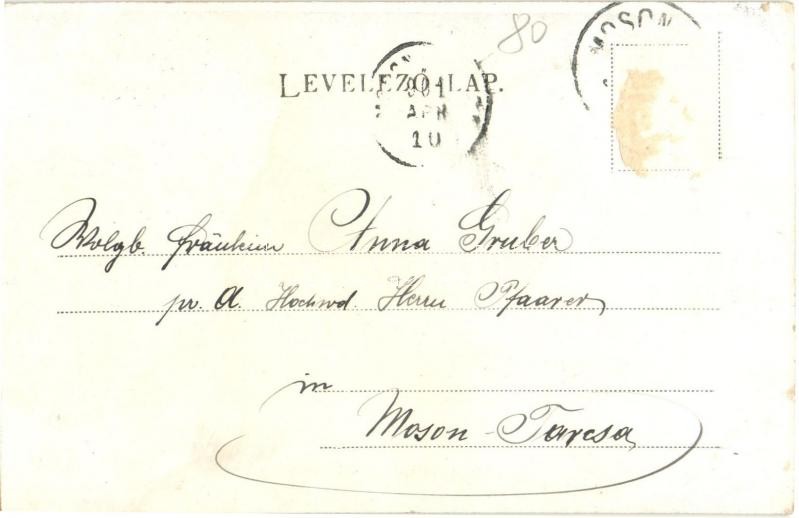 80
MOSON
LEVELEZŐ-LAP.
901
APR
10
Wolgb. Fräulein Anna Gruber
pr. A. Hochwd. Herrn Pfaarer
in
Moson-Tarcsa